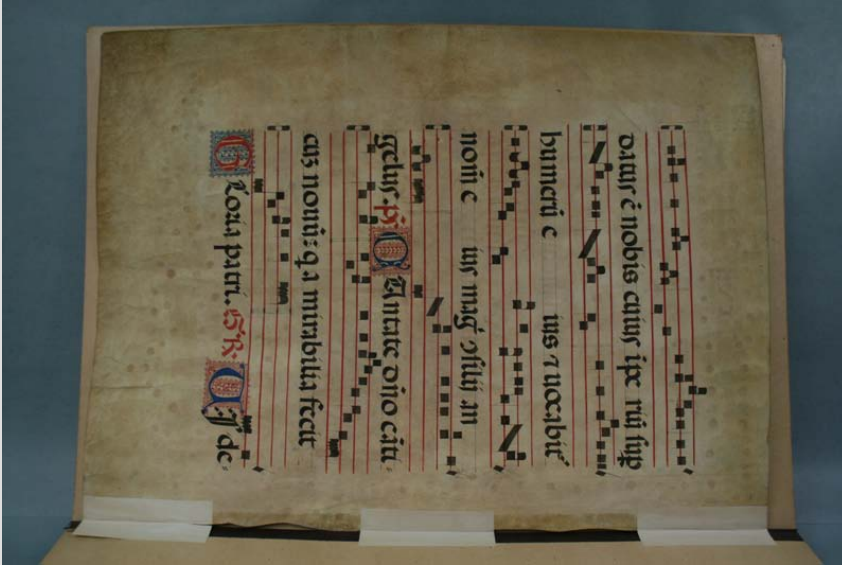 datus ē nobis cuius ipe riū sup
humerū e ius ⁊ uocabit᷑
nom̄ e ius maḡ ꝯsilij an
gelus. p̄s Cantate dn̄o cāti-
cuz nouū: q̄a mirabilia fecit
Gloria patri. G R. VI de-